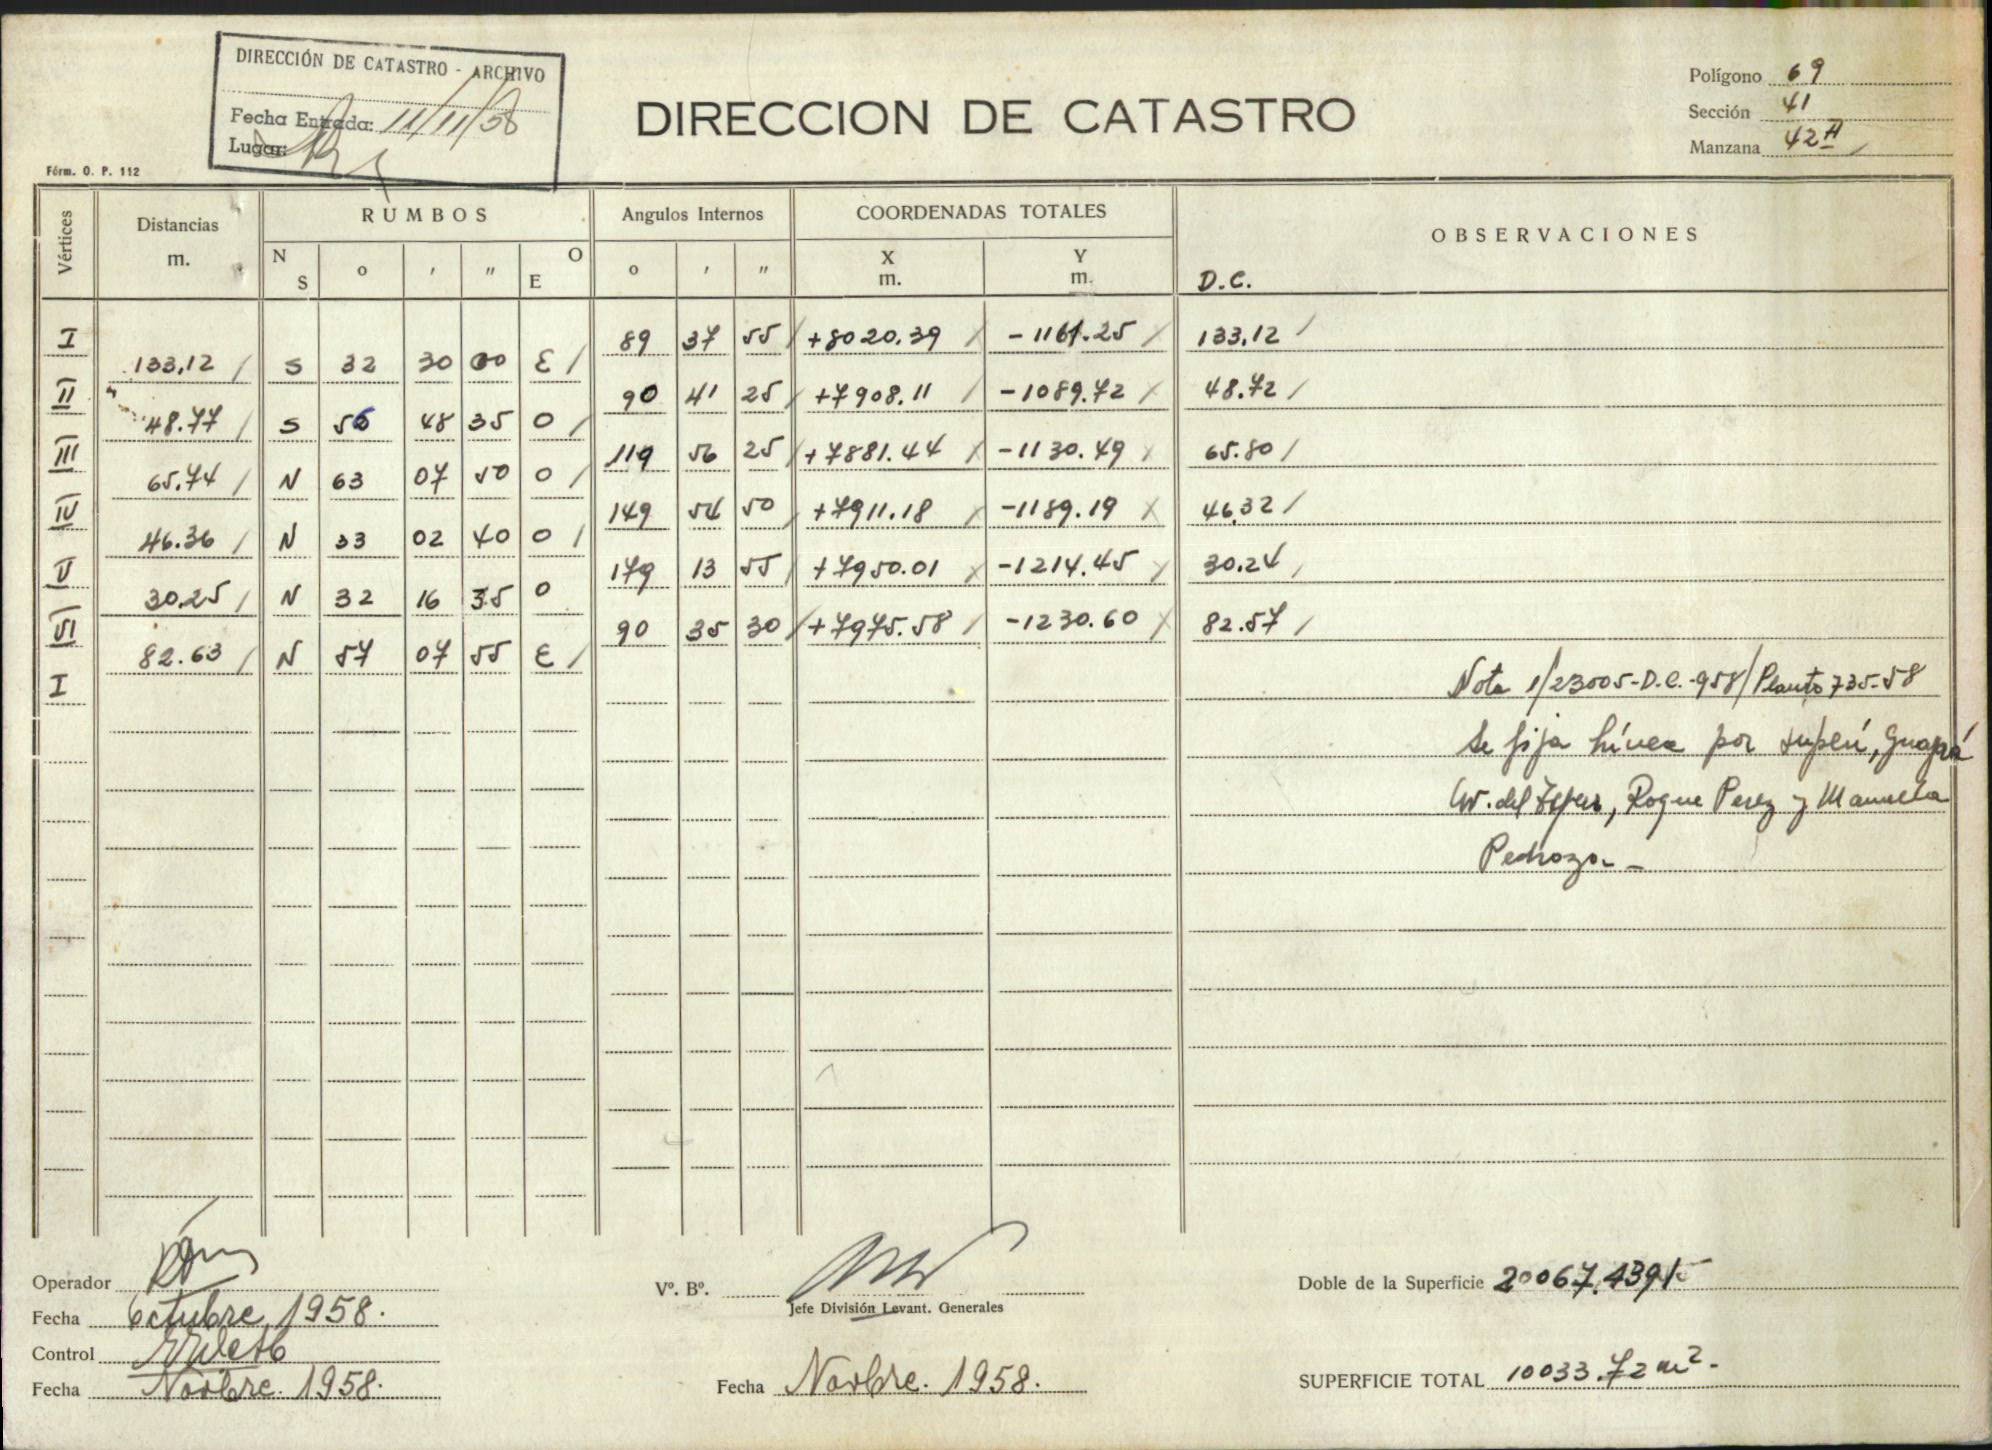 DIRECCIÓN DE CATASTRO - ARCHIVO
Fecha Entrada: 11/11/58
Lugar:
Fórm. O. P. 112
DIRECCION DE CATASTRO
Polígono 69
Sección 41
Manzana 42A
Vértices Distancias m. RUMBOS Angulos Internos COORDENADAS TOTALES OBSERVACIONES
N S o ' " O E o ' " X m. Y m. D.C.
I 89 37 55 +8020.39 -1161.25 133,12
133,12 S 32 30 00 E
II 90 41 25 +7908.11 -1089.72 48.72
48.77 S 56 48 35 O
III 119 56 25 +7881.44 -1130.49 65.80
65.74 N 63 07 50 O
IV 149 54 50 +7911.18 -1189.19 46,32
46.36 N 33 02 40 O
V 179 13 55 +7950.01 -1214.45 30.24
30.25 N 32 16 35 O
VI 90 35 30 +7975.58 -1230.60 82.57
82.63 N 57 07 55 E
I
Nota 1/23005-D.C.-958/Planito 735-58
Se fija línea por Superí, Guayrá
Av. del Tejar, Roque Perez y Manuela
Pedroza -
Operador
Fecha Octubre 1958.
Control
Fecha Novbre. 1958.
Vº. Bº.
Jefe División Levant. Generales
Fecha Novbre. 1958.
Doble de la Superficie 20067.4391
SUPERFICIE TOTAL 10033.72 m².